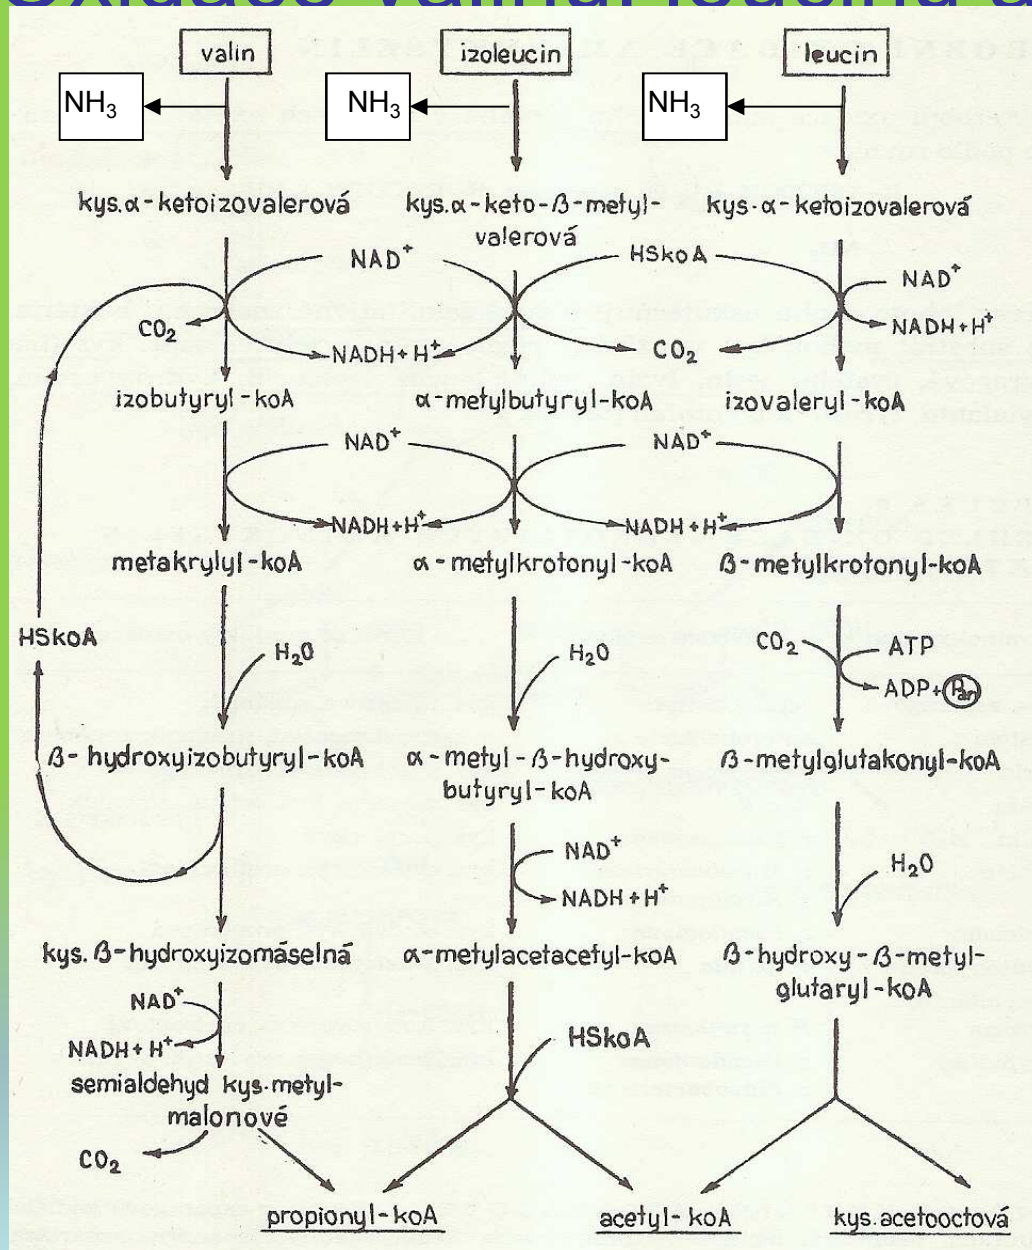 Oxidace valinu, leucinu a
valin izoleucin leucin
NH3 NH3 NH3
kys.α-ketoizovalerová kys.α-keto-β-metyl- kys.α-ketoizovalerová
valerová
NAD+ HSkoA NAD+
CO2 NADH+H+ CO2 NADH+H+
izobutyryl-koA α-metylbutyryl-koA izovaleryl-koA
NAD+ NAD+
NADH+H+ NADH+H+
metakrylyl-koA α-metylkrotonyl-koA β-metylkrotonyl-koA
HSkoA H2O H2O CO2 ATP
ADP+Pan
β-hydroxyizobutyryl-koA α-metyl-β-hydroxy- β-metylglutakonyl-koA
butyryl-koA
NAD+ H2O
NADH+H+
kys.β-hydroxyizomáselná α-metylacetacetyl-koA β-hydroxy-β-metyl-
glutaryl-koA
NAD+
HSkoA
NADH+H+
semialdehyd kys.metyl-
malonové
CO2
propionyl-koA acetyl-koA kys.acetooctová